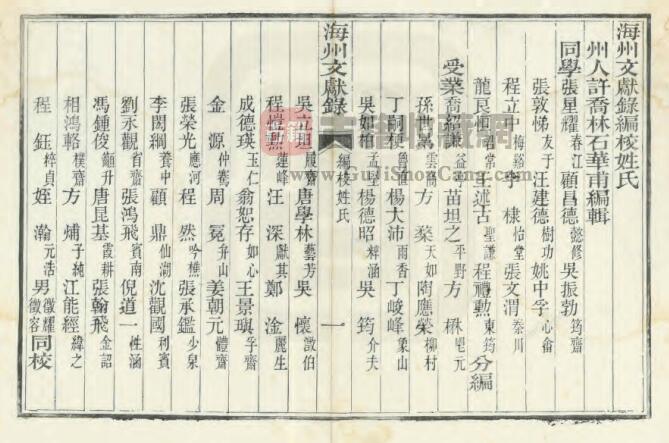 海州文獻錄編校姓氏
州人許喬林石華甫編輯
同學張星耀春江 顧昌德懿修 吳振勃筠齋
張敦悌友于 汪建德樹功 姚中孚心畬
程立中梅谿 李棣怡堂 張文渭秦川
龍艮恒 王述古聖謙 程禮勳東筠 分編
受業喬紹 益 苗坦之平野 方楙
孫世 雲 方楘天如 陶應榮柳村
丁嗣 魯直 楊大沛雨香 丁峻峰象山
吳如柏孟堅 楊德昭梓涵 吳筠介夫
海州文獻錄 編校姓氏 一
吳立坦履齋 唐學林藝芳 吳懷澂伯
程 蓮峰 汪深獻其 鄭淦麗生
成德瑛玉仁 翁恕存如心 王景璵孚齋
金源仲騫 周冕升山 姜朝元體齋
張榮光應河 程然吟樵 張承鑑少泉
李閎綱養中 顧鼎仙湖 沈觀國利賓
劉永觀省齋 張鴻飛賓南 倪道一性涵
馮鍾俊 升 唐昆基霞耕 張翰飛金詔
相鴻輅樸齋 方煏子純 江能經緯之
程鈺梓貞 姪瀚元浩 男徵耀徵容 同校